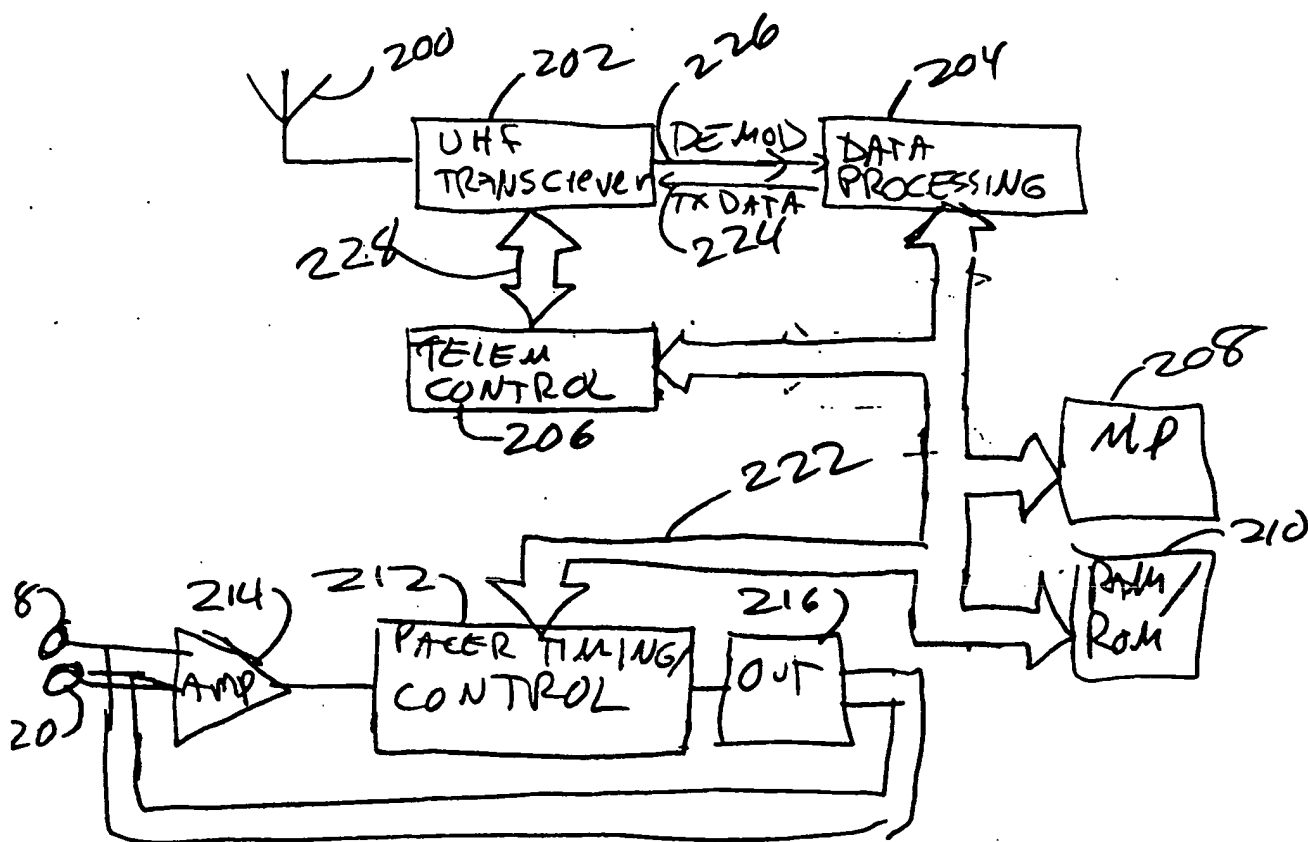 200
202
226
204
UHF
TRANSCIEVER
DEMOD
TX DATA
224
DATA
PROCESSING
228
TELEM
CONTROL
206
208
MP
222
210
RAM/
ROM
8
214
212
216
AMP
PACER TIMING/
CONTROL
OUT
20